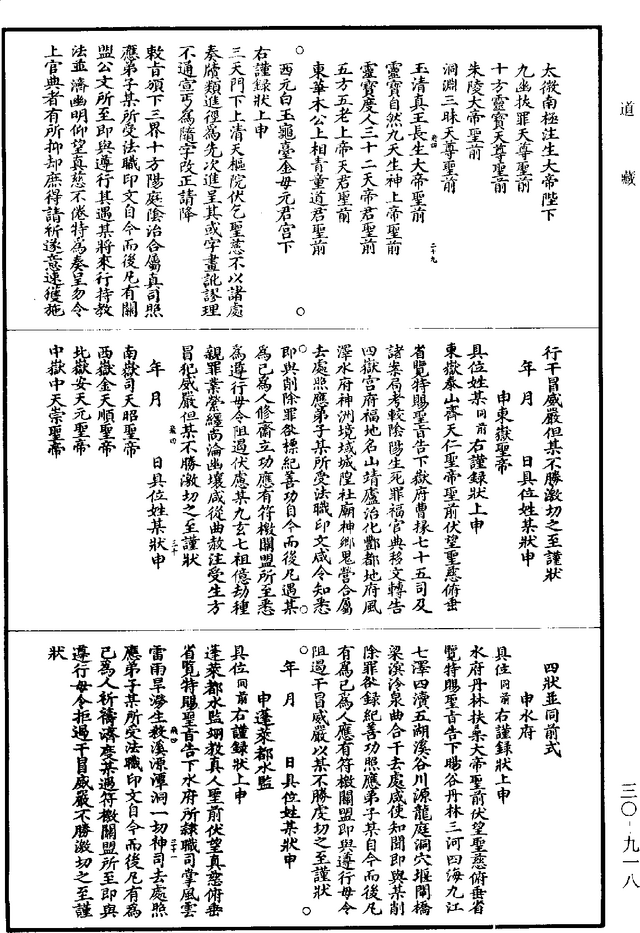 道藏
太微南極注生大帝陛下
九幽拔罪天尊聖前
十方靈寶天尊聖前
朱陵大帝聖前
洞淵三昧天尊聖前
玉清真王長生大帝聖前
靈寶自然九天生神上帝聖前
靈寶度人三十二天帝君聖前
五方五老上帝天君聖前
東華木公上相青童道君聖前
西元白玉龜臺金母元君宮下
右謹錄狀上申
三天門下上清天樞院伏乞聖慈不以諸處
奏牘類進徑為先次進呈其或字畫訛謬理
不通宣丐為隨字改正請降
敕旨頒下三界十方陽庭陰治合屬真司照
應弟子某所受法職印文自今而後凡有關
盟公文所至即與遵行其遇某將來行持教
法並濟幽明仰望真慈不倦特為奏呈勿令
上官典者有所抑却庶得請祈遂意速獲施
行干冒威嚴但某不勝激切之至謹狀
年月日具位姓某狀申
申東嶽聖帝
具位姓某同前右謹錄狀上申
東嶽泰山齊天仁聖帝聖前伏望聖慈俯垂
省覽特賜聖旨告下嶽府曹掾七十五司及
諸案局考較陰陽生死罪福官典移文轉告
四嶽宮府福地名山靖廬治化酆都地府風
澤水府神洲境域城隍社廟神鄉鬼營合屬
去處照應弟子某所受法職印文咸令知悉
即與削除罪欲標紀善功自今而後凡遇某
為己為人修齋立功應有符檄關盟所至悉
為遵行毋令阻遏伏慮某九玄七祖億劫種
親罪業縈纏尚淪幽壤咸從曲赦注受生方
冒犯威嚴但某不勝激切之至謹狀
年月日具位姓某狀申
南嶽司天昭聖帝
西嶽金天順聖帝
北嶽安天元聖帝
中嶽中天崇聖帝
四狀並同前式
申水府
具位同前右謹錄狀上申
水府丹林扶桑大帝聖前伏望聖慈俯垂省
覽特賜聖旨告下暘谷丹林三河四海九江
七澤四瀆五湖溪谷川源龍庭洞穴堰閘橋
梁濱泠泉曲合干去處咸使知聞即與某削
除罪欲錄紀善功照應弟子某自今而後凡
有為己為人應有符檄關盟即與遵行毋令
阻遏干冒威嚴以某不勝虔切之至謹狀
年月日具位姓某狀申
申蓬萊都水監
具位同前右謹錄狀上申
蓬萊都水監翊教真人聖前伏望真慈俯垂
省覽特賜聖旨告下水府所隸職司掌風雲
雷雨旱澇生殺溪源潭洞一切神司去處照
應弟子某所受法職印文自今而後凡有為
己為人祈禱濟度某遇符檄關盟所至即與
遵行毋令拒遏干冒威嚴不勝激切之至謹
狀
三〇-九一八